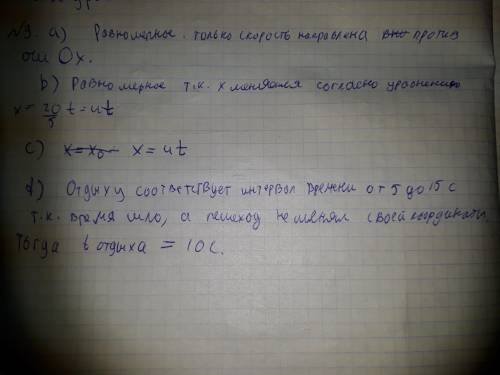 №9. а) Равномерное. только скорость направлена против
оси Ох.
b) Равномерное т.к. х меняется согласно уравнению
x = 20/5 t = 4t
c) x = x₀ x = 4t
d) Отдыху соответствует интервал времени от 5 до 15 с
т.к. время шло, а пешеход не менял своей координаты,
Тогда t отдыха = 10 с.